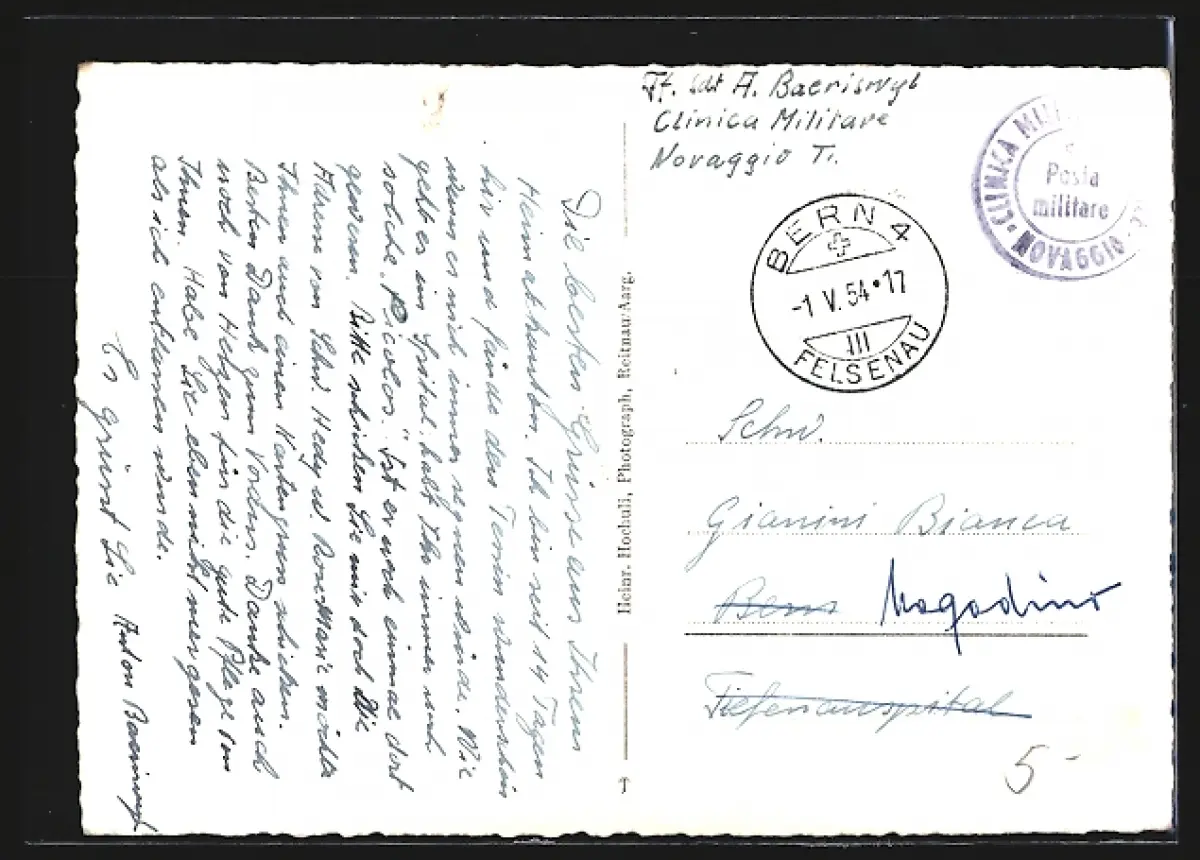 Ff. Sdt A. Baeriswyl
Clinica Militare
Novaggio Ti.
CLINICA MILI
Posta
militare
NOVAGGIO
BERN 4
-1 V. 54 • 17
III
FELSENAU
Schw.
Gianini Bianca
Bern Magadino
Tiefenauspital
5-
Heinr. Hochuli, Photograph, Reitnau/Aarg.
Die besten Grüsse aus Ihrem
Heimatkanton. Ich bin seit 14 Tagen
hir und finde das Tessin wunderschön
wenn es nich immer regnen würde. Wie
geht es im Spital. habt Ihr immer noch
solche "Picolos". Ist er noch einmal dort
gewesen. Bitte schicken Sie mir doch die
Adresse von Schw. Hedy u. Rose-Marie möchte
Ihnen auch einen Kartengruss schicken.
Besten Dank zum Voraus. Danke auch
noch von Herzen für die gute Pflege von
Ihnen. Habe Sie eben nicht mer gesen
als ich entlassen wurde.
Es grüsst Sie Anton Baeriswyl